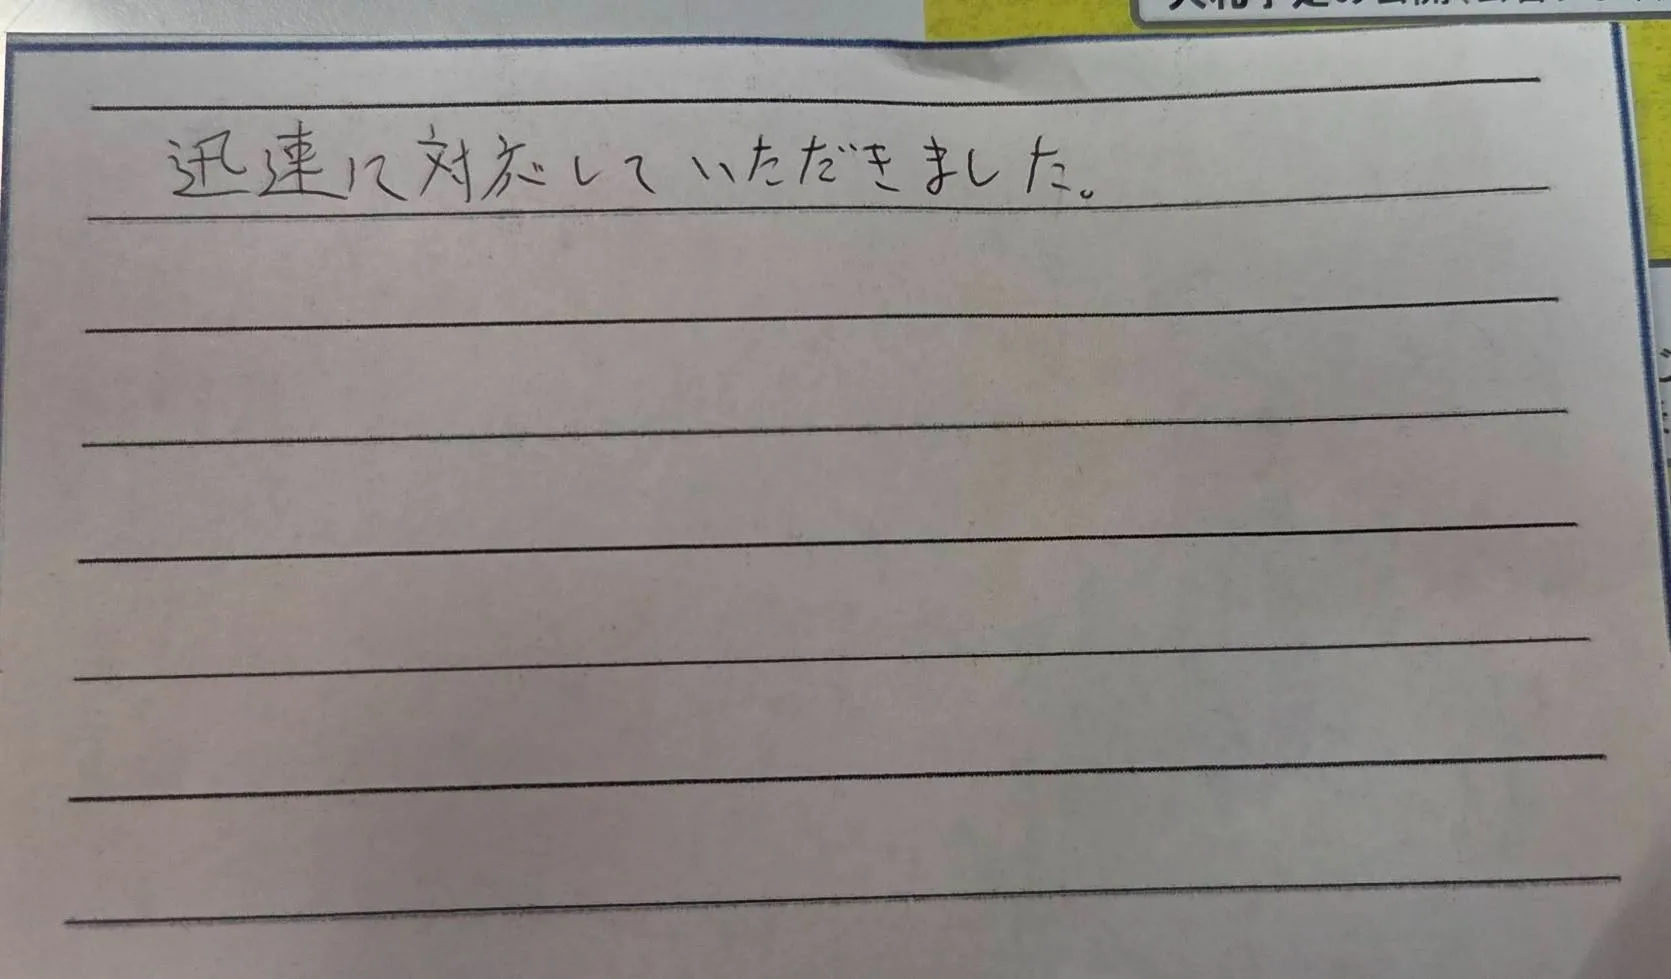 迅速に対応していただきました。